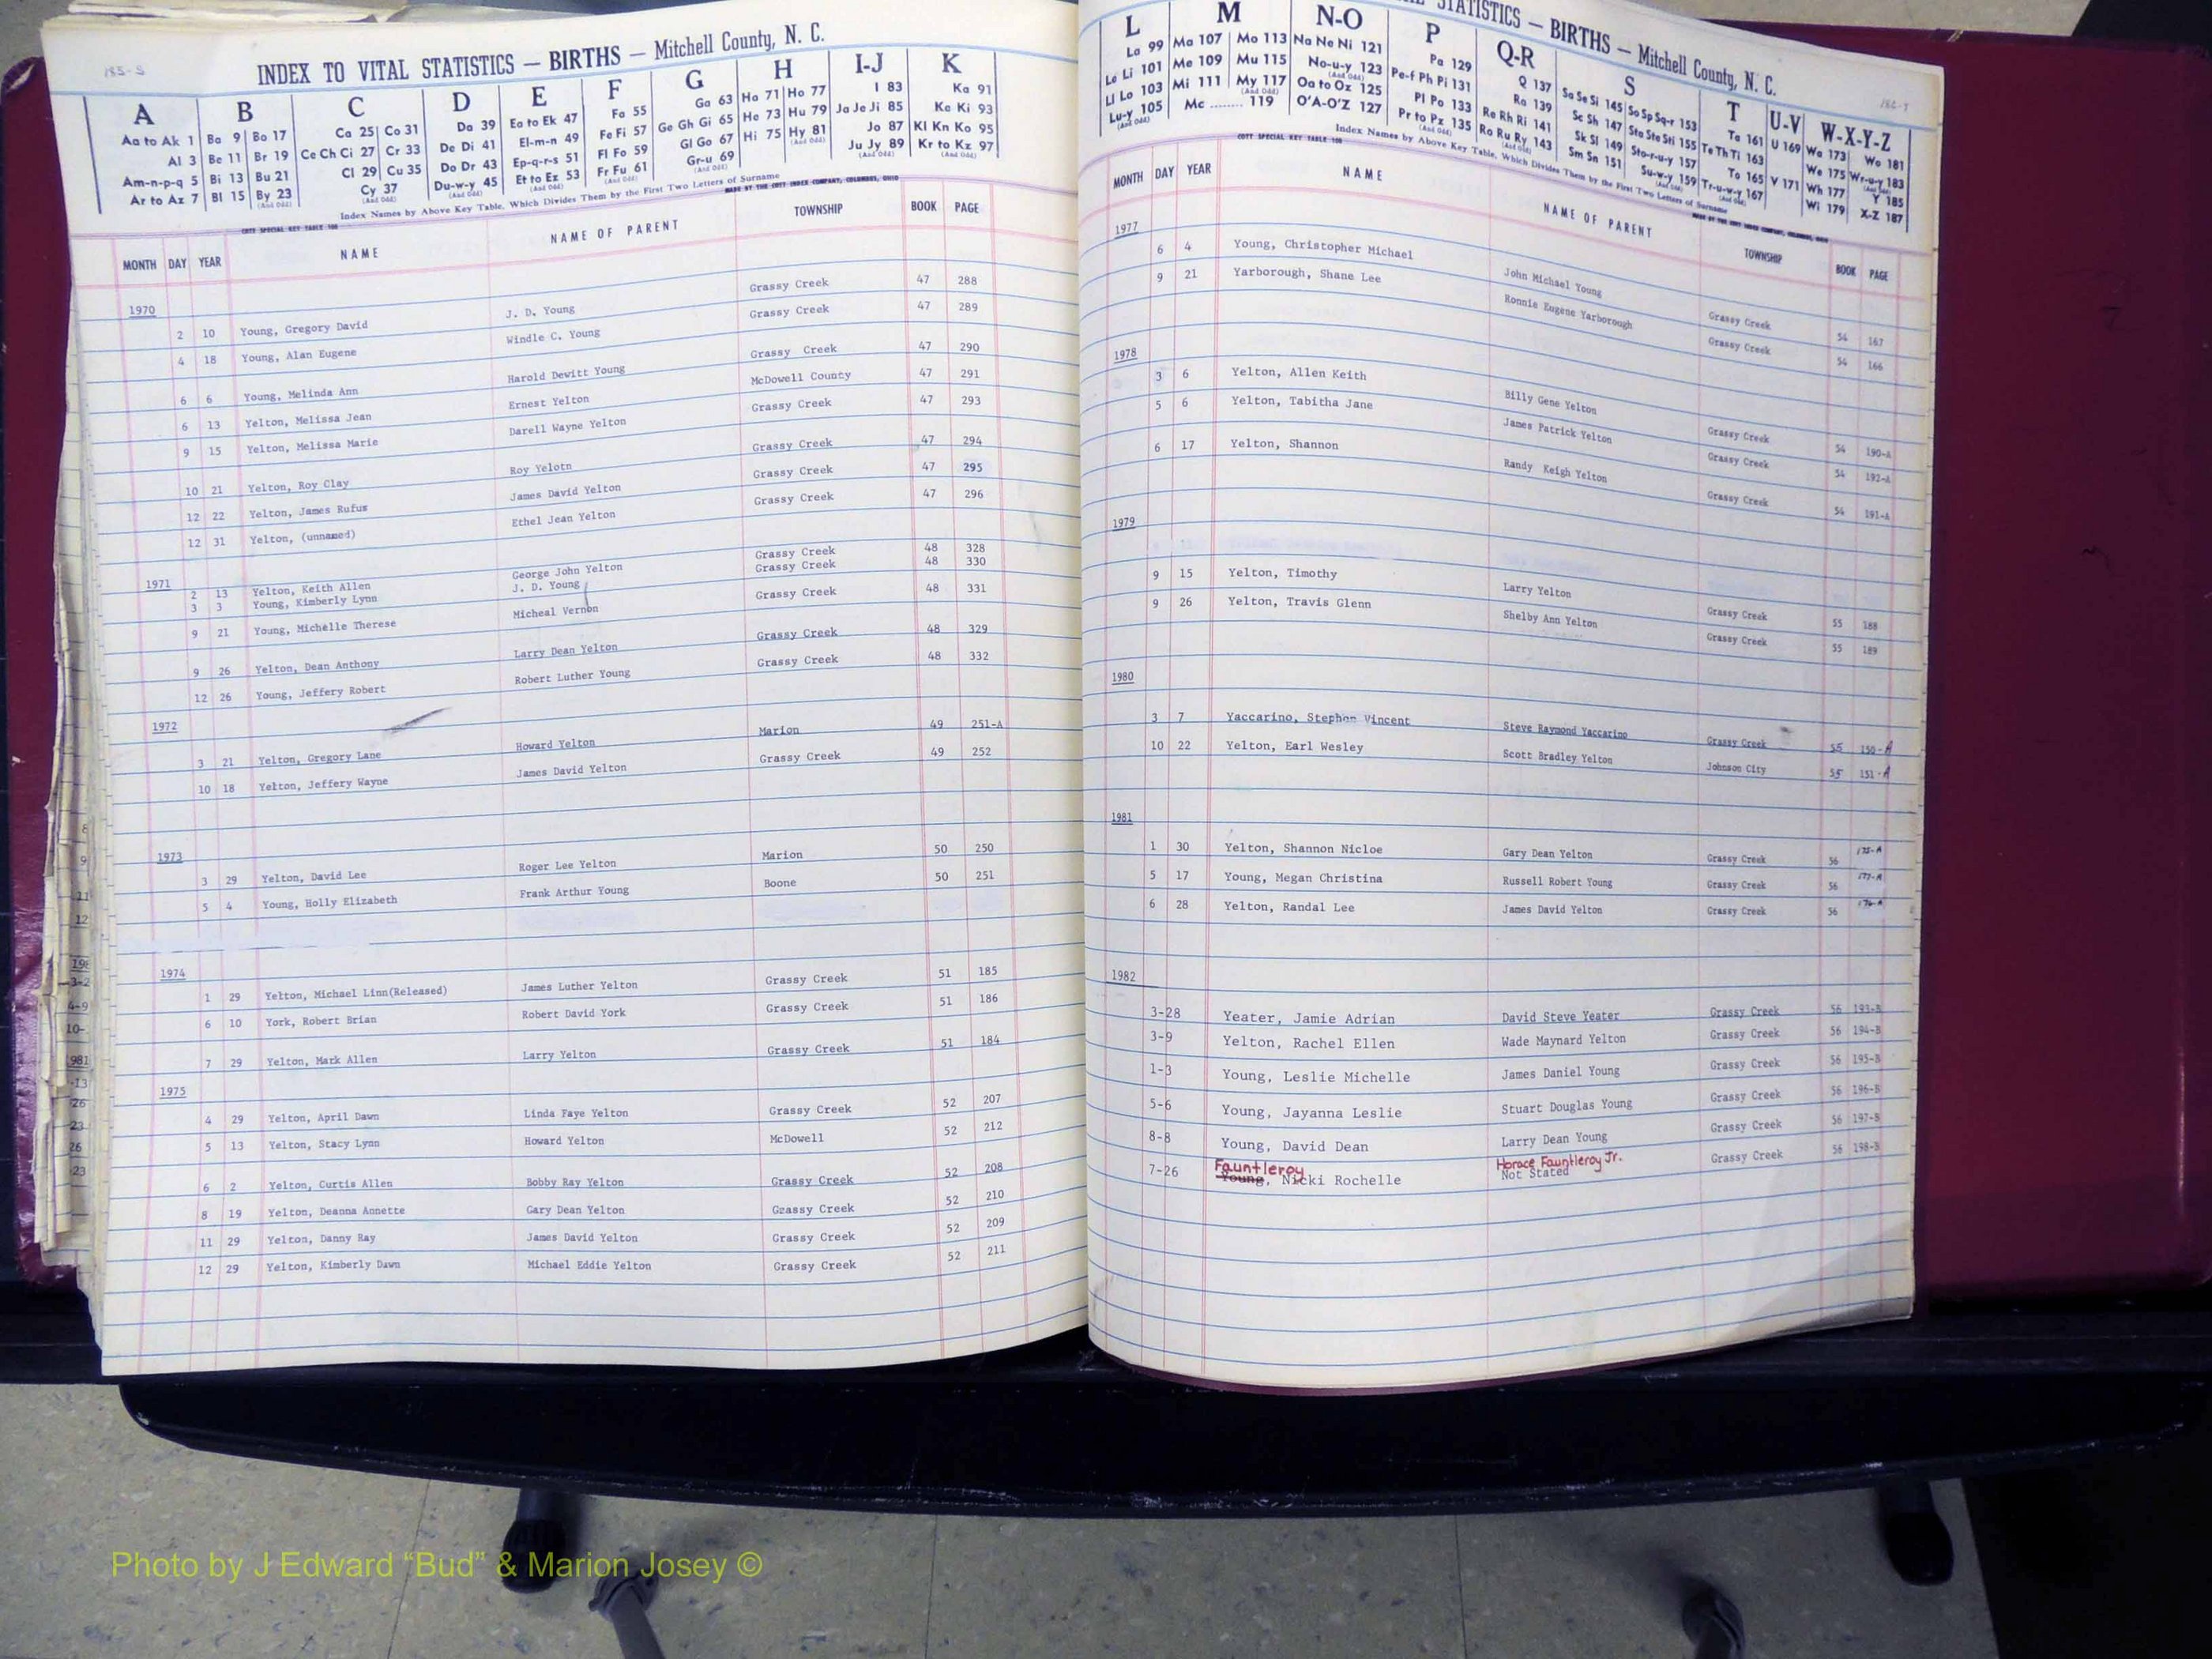 185-S
INDEX TO VITAL STATISTICS — BIRTHS — Mitchell County, N. C.
A B C D E F G H I-J K
Aa to Ak 1 Ba 9 Bo 17 Ca 25 Co 31 Da 39 Ea to Ek 47 Fa 55 Ga 63 Ha 71 Ho 77 I 83 Ka 91
Al 3 Be 11 Br 19 Ce Ch Ci 27 Cr 33 De Di 41 El-m-n 49 Fe Fi 57 Ge Gh Gi 65 He 73 Hu 79 Ja Je Ji 85 Ke Ki 93
Am-n-p-q 5 Bi 13 Bu 21 Cl 29 Cu 35 Do Dr 43 Ep-q-r-s 51 Fl Fo 59 Gl Go 67 Hi 75 Hy 81 Jo 87 Kl Kn Ko 95
Ar to Az 7 Bl 15 By 23 Cy 37 Du-w-y 45 Et to Ez 53 Fr Fu 61 Gr-u 69 Ju Jy 89 Kr to Kz 97
Index Names by Above Key Table, Which Divides Them by the First Two Letters of Surname
COTT SPECIAL KEY TABLE 100 MADE BY THE COTT INDEX COMPANY, COLUMBUS, OHIO
MONTH DAY YEAR NAME NAME OF PARENT TOWNSHIP BOOK PAGE
1970
2 10 Young, Gregory David J. D. Young Grassy Creek 47 288
4 18 Young, Alan Eugene Windle C. Young Grassy Creek 47 289
6 6 Young, Melinda Ann Harold Dewitt Young Grassy Creek 47 290
6 13 Yelton, Melissa Jean Ernest Yelton McDowell County 47 291
9 15 Yelton, Melissa Marie Darell Wayne Yelton Grassy Creek 47 293
10 21 Yelton, Roy Clay Roy Yelotn Grassy Creek 47 294
12 22 Yelton, James Rufus James David Yelton Grassy Creek 47 295
12 31 Yelton, (unnamed) Ethel Jean Yelton Grassy Creek 47 296
1971
2 13 Yelton, Keith Allen George John Yelton Grassy Creek 48 328
3 3 Young, Kimberly Lynn J. D. Young Grassy Creek 48 330
9 21 Young, Michelle Therese Micheal Vernon Grassy Creek 48 331
9 26 Yelton, Dean Anthony Larry Dean Yelton Grassy Creek 48 329
12 26 Young, Jeffery Robert Robert Luther Young Grassy Creek 48 332
1972
3 21 Yelton, Gregory Lane Howard Yelton Marion 49 251-A
10 18 Yelton, Jeffery Wayne James David Yelton Grassy Creek 49 252
1973
3 29 Yelton, David Lee Roger Lee Yelton Marion 50 250
5 4 Young, Holly Elizabeth Frank Arthur Young Boone 50 251
1974
1 29 Yelton, Michael Linn(Released) James Luther Yelton Grassy Creek 51 185
6 10 York, Robert Brian Robert David York Grassy Creek 51 186
7 29 Yelton, Mark Allen Larry Yelton Grassy Creek 51 184
1975
4 29 Yelton, April Dawn Linda Faye Yelton Grassy Creek 52 207
5 13 Yelton, Stacy Lynn Howard Yelton McDowell 52 212
6 2 Yelton, Curtis Allen Bobby Ray Yelton Grassy Creek 52 208
8 19 Yelton, Deanna Annette Gary Dean Yelton Grassy Creek 52 210
11 29 Yelton, Danny Ray James David Yelton Grassy Creek 52 209
12 29 Yelton, Kimberly Dawn Michael Eddie Yelton Grassy Creek 52 211
STATISTICS — BIRTHS — Mitchell County, N. C.
L M N-O P Q-R S T U-V W-X-Y-Z
La 99 Ma 107 Mo 113 Na Ne Ni 121 Pa 129 Q 137 Sa Se Si 145 So Sp Sq-r 153 Ta 161 U 169 Wa 173 Wo 181
Le Li 101 Me 109 Mu 115 No-u-y 123 Pe-f Ph Pi 131 Ra 139 Sc Sh 147 Sta Ste Sti 155 Te Th Ti 163 We 175 Wr-u-y 183
Ll Lo 103 Mi 111 My 117 Oa to Oz 125 Pl Po 133 Re Rh Ri 141 Sk Sl 149 Sto-r-u-y 157 To 165 V 171 Wh 177 Y 185
Lu-y 105 Mc 119 O'A-O'Z 127 Pr to Pz 135 Ro Ru Ry 143 Sm Sn 151 Su-w-y 159 Tr-u-w-y 167 Wi 179 X-Z 187
Index Names by Above Key Table, Which Divides Them by the First Two Letters of Surname
COTT SPECIAL KEY TABLE 100
MONTH DAY YEAR NAME NAME OF PARENT TOWNSHIP BOOK PAGE
1977
6 4 Young, Christopher Michael John Michael Young Grassy Creek 54 167
9 21 Yarborough, Shane Lee Ronnie Eugene Yarborough Grassy Creek 54 166
1978
3 6 Yelton, Allen Keith Billy Gene Yelton Grassy Creek 54 190-A
5 6 Yelton, Tabitha Jane James Patrick Yelton Grassy Creek 54 192-A
6 17 Yelton, Shannon Randy Keigh Yelton Grassy Creek 54 191-A
1979
9 15 Yelton, Timothy Larry Yelton Grassy Creek 55 188
9 26 Yelton, Travis Glenn Shelby Ann Yelton Grassy Creek 55 189
1980
3 7 Yaccarino, Stephen Vincent Steve Raymond Yaccarino Grassy Creek 55 150-A
10 22 Yelton, Earl Wesley Scott Bradley Yelton Johnson City 55 151-A
1981
1 30 Yelton, Shannon Nicloe Gary Dean Yelton Grassy Creek 56
5 17 Young, Megan Christina Russell Robert Young Grassy Creek 56 177-A
6 28 Yelton, Randal Lee James David Yelton Grassy Creek 56
1982
3-28 Yeater, Jamie Adrian David Steve Yeater Grassy Creek 56 193-B
3-9 Yelton, Rachel Ellen Wade Maynard Yelton Grassy Creek 56 194-B
1-3 Young, Leslie Michelle James Daniel Young Grassy Creek 56 195-B
5-6 Young, Jayanna Leslie Stuart Douglas Young Grassy Creek 56 196-B
8-8 Young, David Dean Larry Dean Young Grassy Creek 56 197-B
Fauntleroy Horace Fauntleroy Jr.
7-26 Young, Nicki Rochelle Not Stated Grassy Creek 56 198-B
Photo by J Edward “Bud” & Marion Josey ©